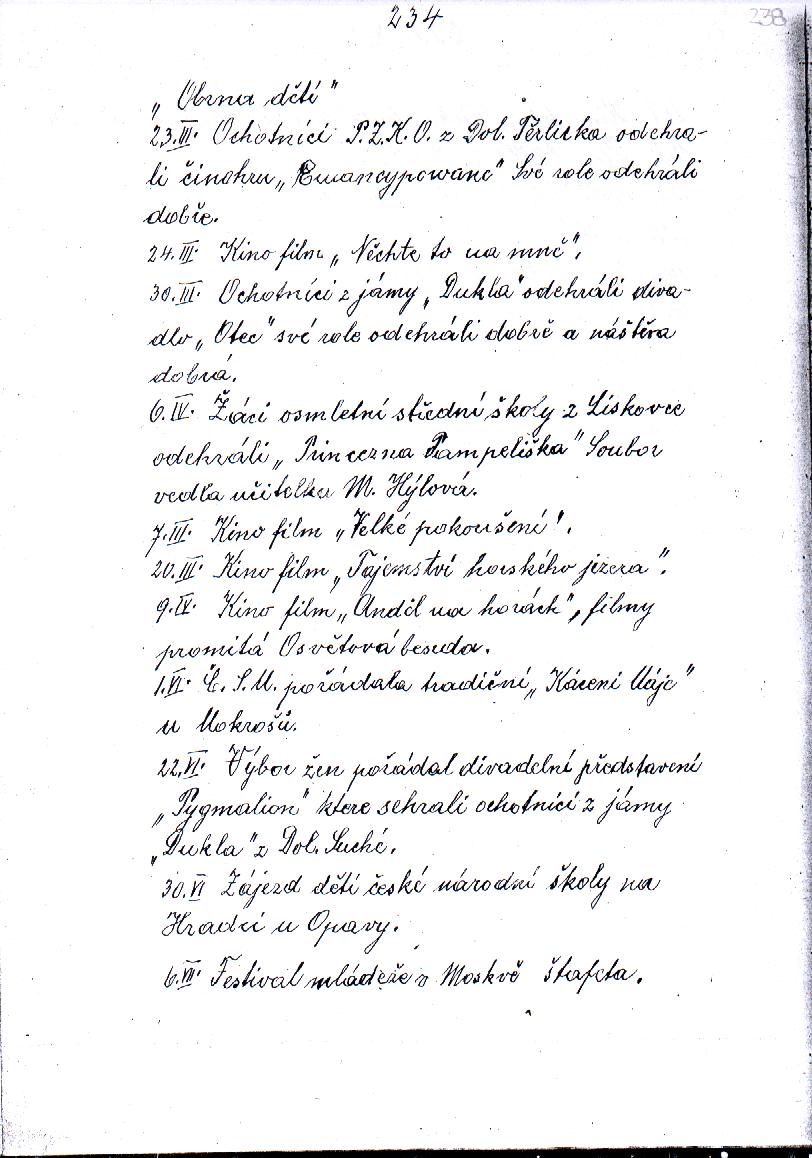 234
238
„Obrna dětí"
23.III. Ochotníci P.Z.K.O. z Dol. Těrlicka odehrá-
li činohru „Emancypowane" Své role odehráli
dobře.
24.III. Kino film „Nechte to na mně".
30.III. Ochotníci z jámy „Dukla" odehráli diva-
dlo „Otec" své role odehráli dobře a náštěva
dobrá.
6.IV. Žáci osmletní střední školy z Lískovce
odehráli „Princezna Pampeliška" Soubor
vedla učitelka M. Hýlová.
7.III. Kino film „Velké pokoušení".
20.III. Kino film „Tajemství horského jezera".
9.IV. Kino film „Anděl na horách", filmy
promítá Osvětová beseda.
1.VI. Č.S.M. pořádala tradiční „Kácení Máje"
u Mokrošů.
22.VI. Výbor žen pořádal divadelní představení
„Pygmalion" ktere sehrali ochotníci z jámy
„Dukla" z Dol. Suché.
30.VI Zájezd dětí české národní školy na
Hradci u Opavy.
6.VII. Festival mládeže v Moskvě štafeta.